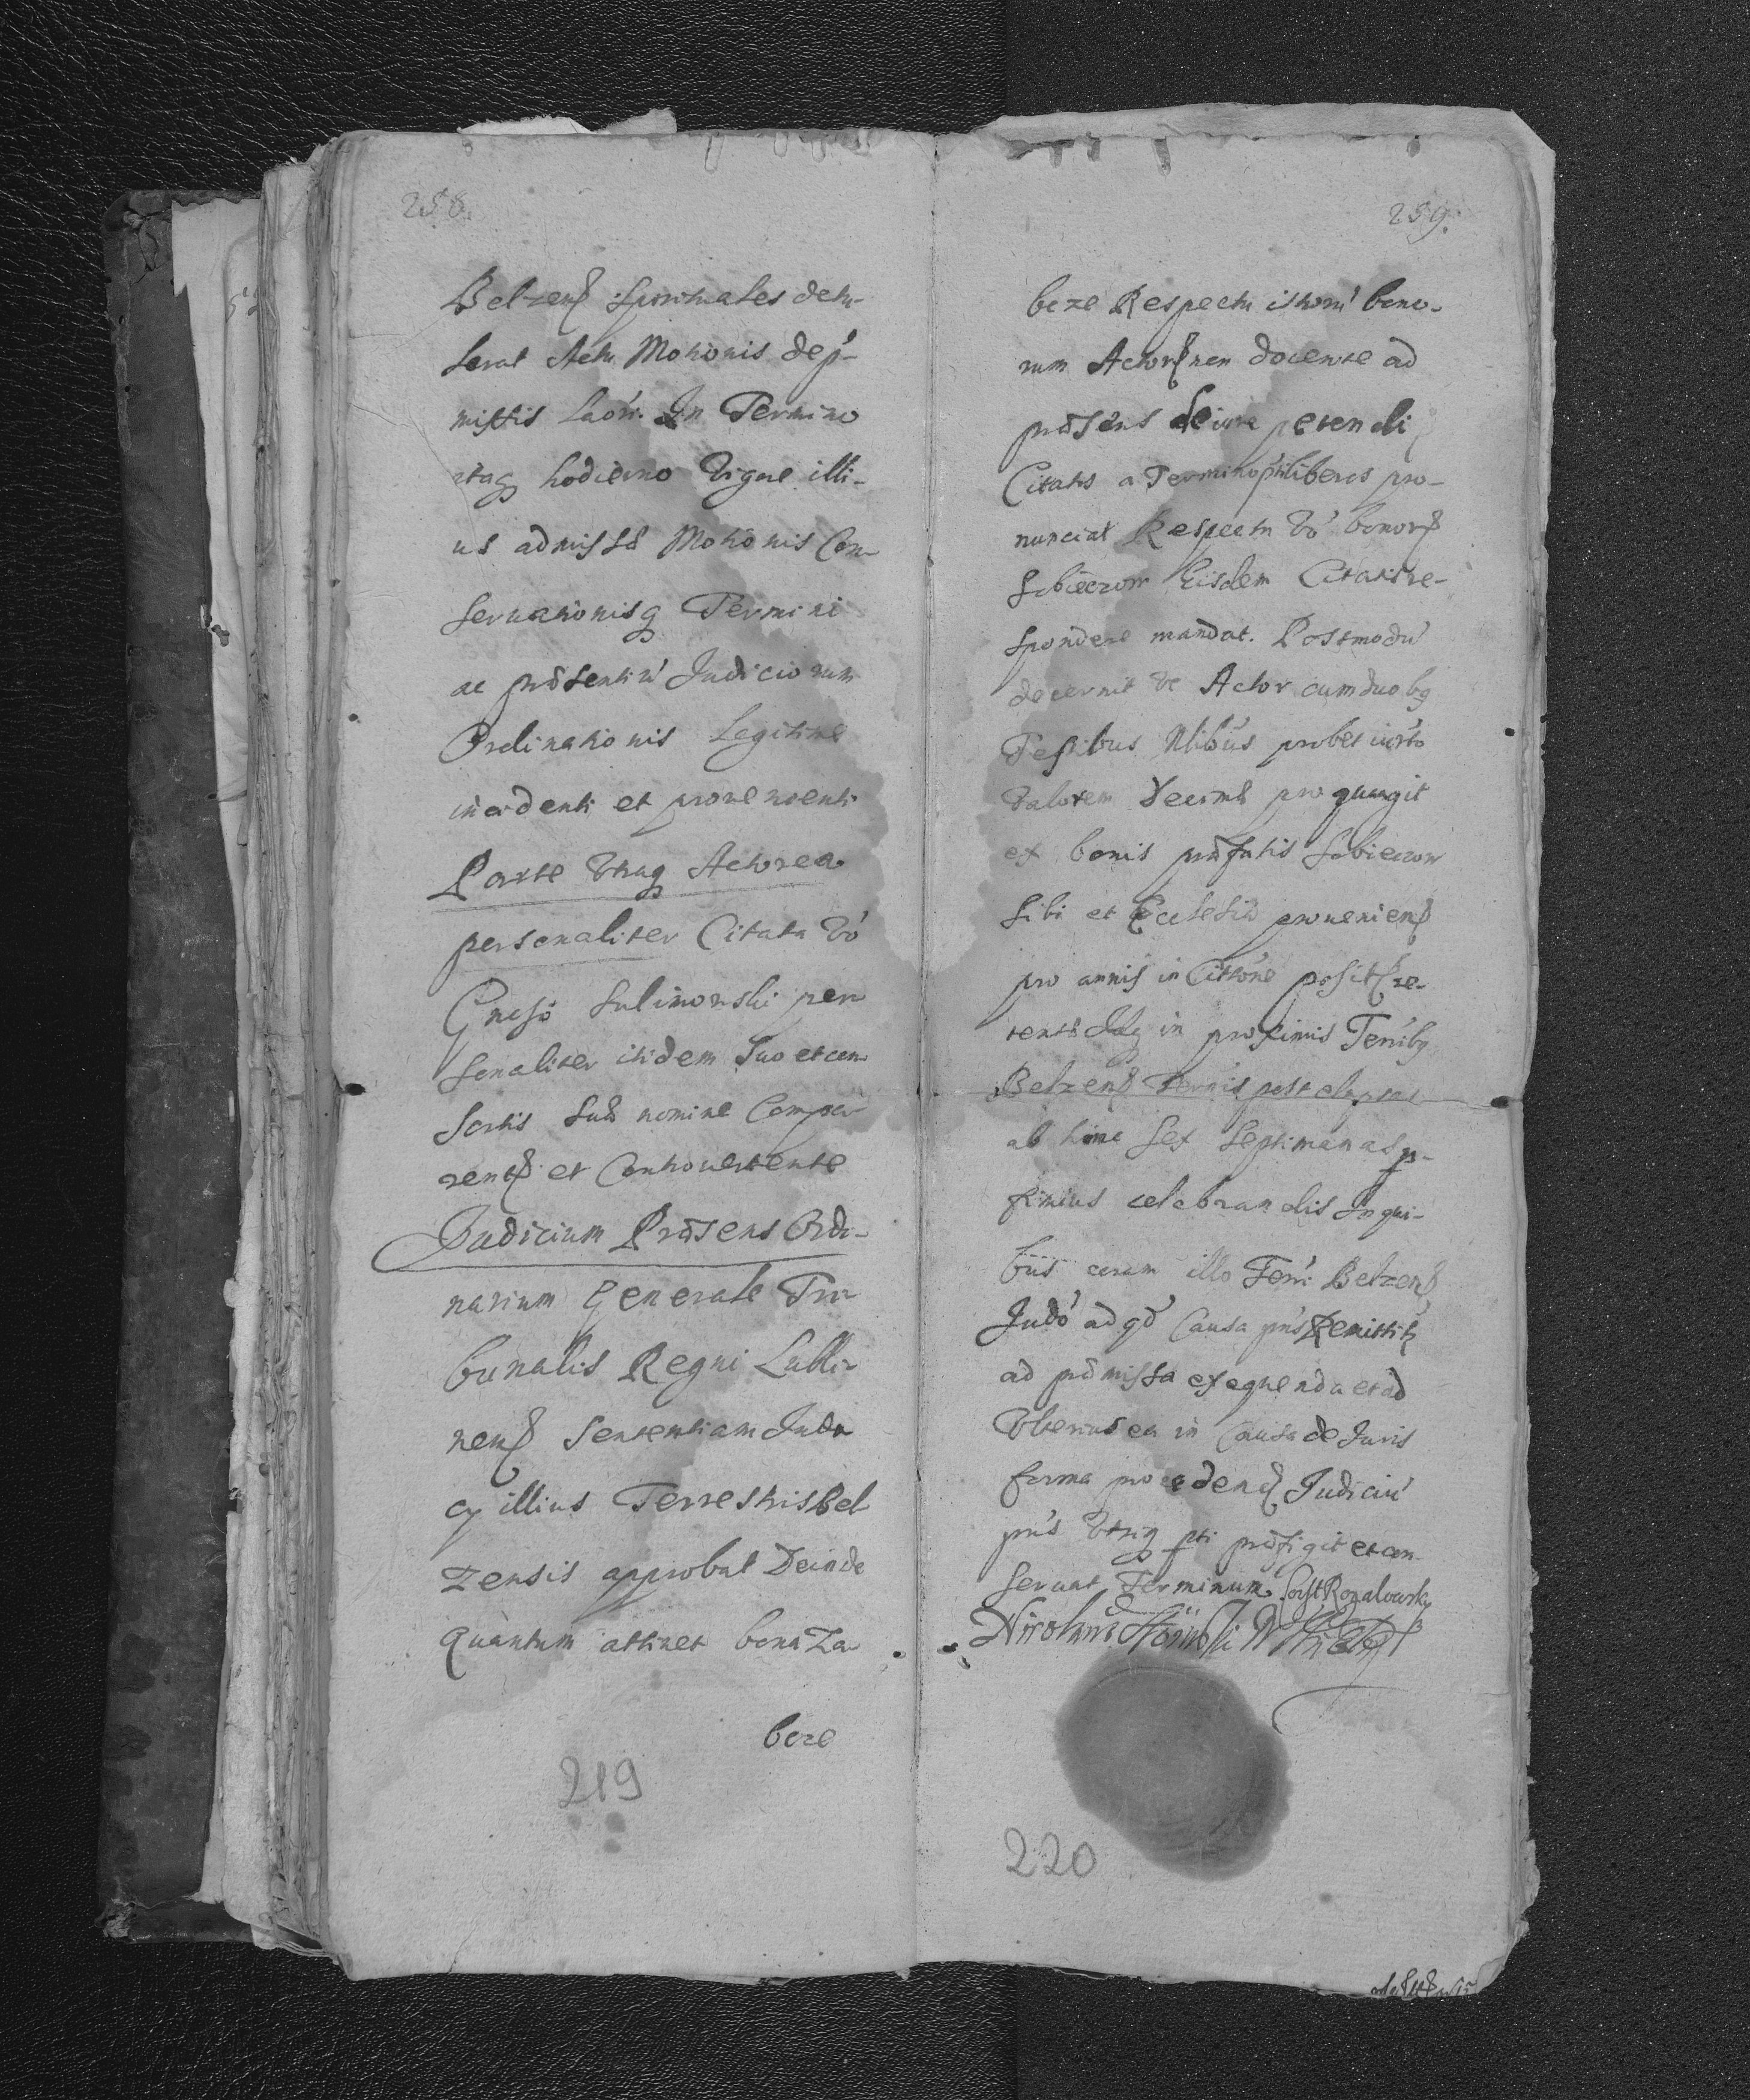 258.
Belzens spirituales detu-
lerat Actu Motionis de p-
missis laõr. In Termino
itaq hodierno Vigore illi-
us admissæ Motionis Con-
seruationisq Termini
ac præsentiũ Judiciorum
Ordinationis Legitime
incidenti et proueniente
Parte Vtraq Actorea
personaliter Citata Vó
Gneso Sulimowski per
sonaliter itidem Suo et con
sortis suæ nomine Compa-
rents et Controuertente
Judicium Præsens Ordi-
narium Generale Tri-
bunalis Regni Lubli-
nens Sententiam Judi
cy illius Terrestris Bel
zensis approbat Deinde
Quantum attinet bona Za
beze
219
259.
beze Respectu istorũ bono-
rum Actore non docente ad
præsens de iure petendi
Citatos a Termino liberos pro-
nunciat Respectu Vó bonorum
Sobieczow Eisdem Citatis re-
spondere mandat. Postmodũ
decernit vt Actor cum duobq
Testibus Nlibus probet iurto
Valorem Decimæ pro qua agit
ex bonis præfatis Sobieczow
sibi et Ecclesiæ proueniens
pro annis in Cittõne posit re-
tentæ Idq in proximis Terribq
Belzens Terris post elapsas
ab hinc sex septimanas p-
ximius celebrandis In qui-
bus coram illo Terri Belzens
Judó ad qd Causa pns Remittitr
ad præmissa exequenda et ad
Vlterius ea in Causa de Juris
forma procedend Judiciũ
pns Vtriq pti præfigit et con
seruat Terminum.
Nicolaus
220